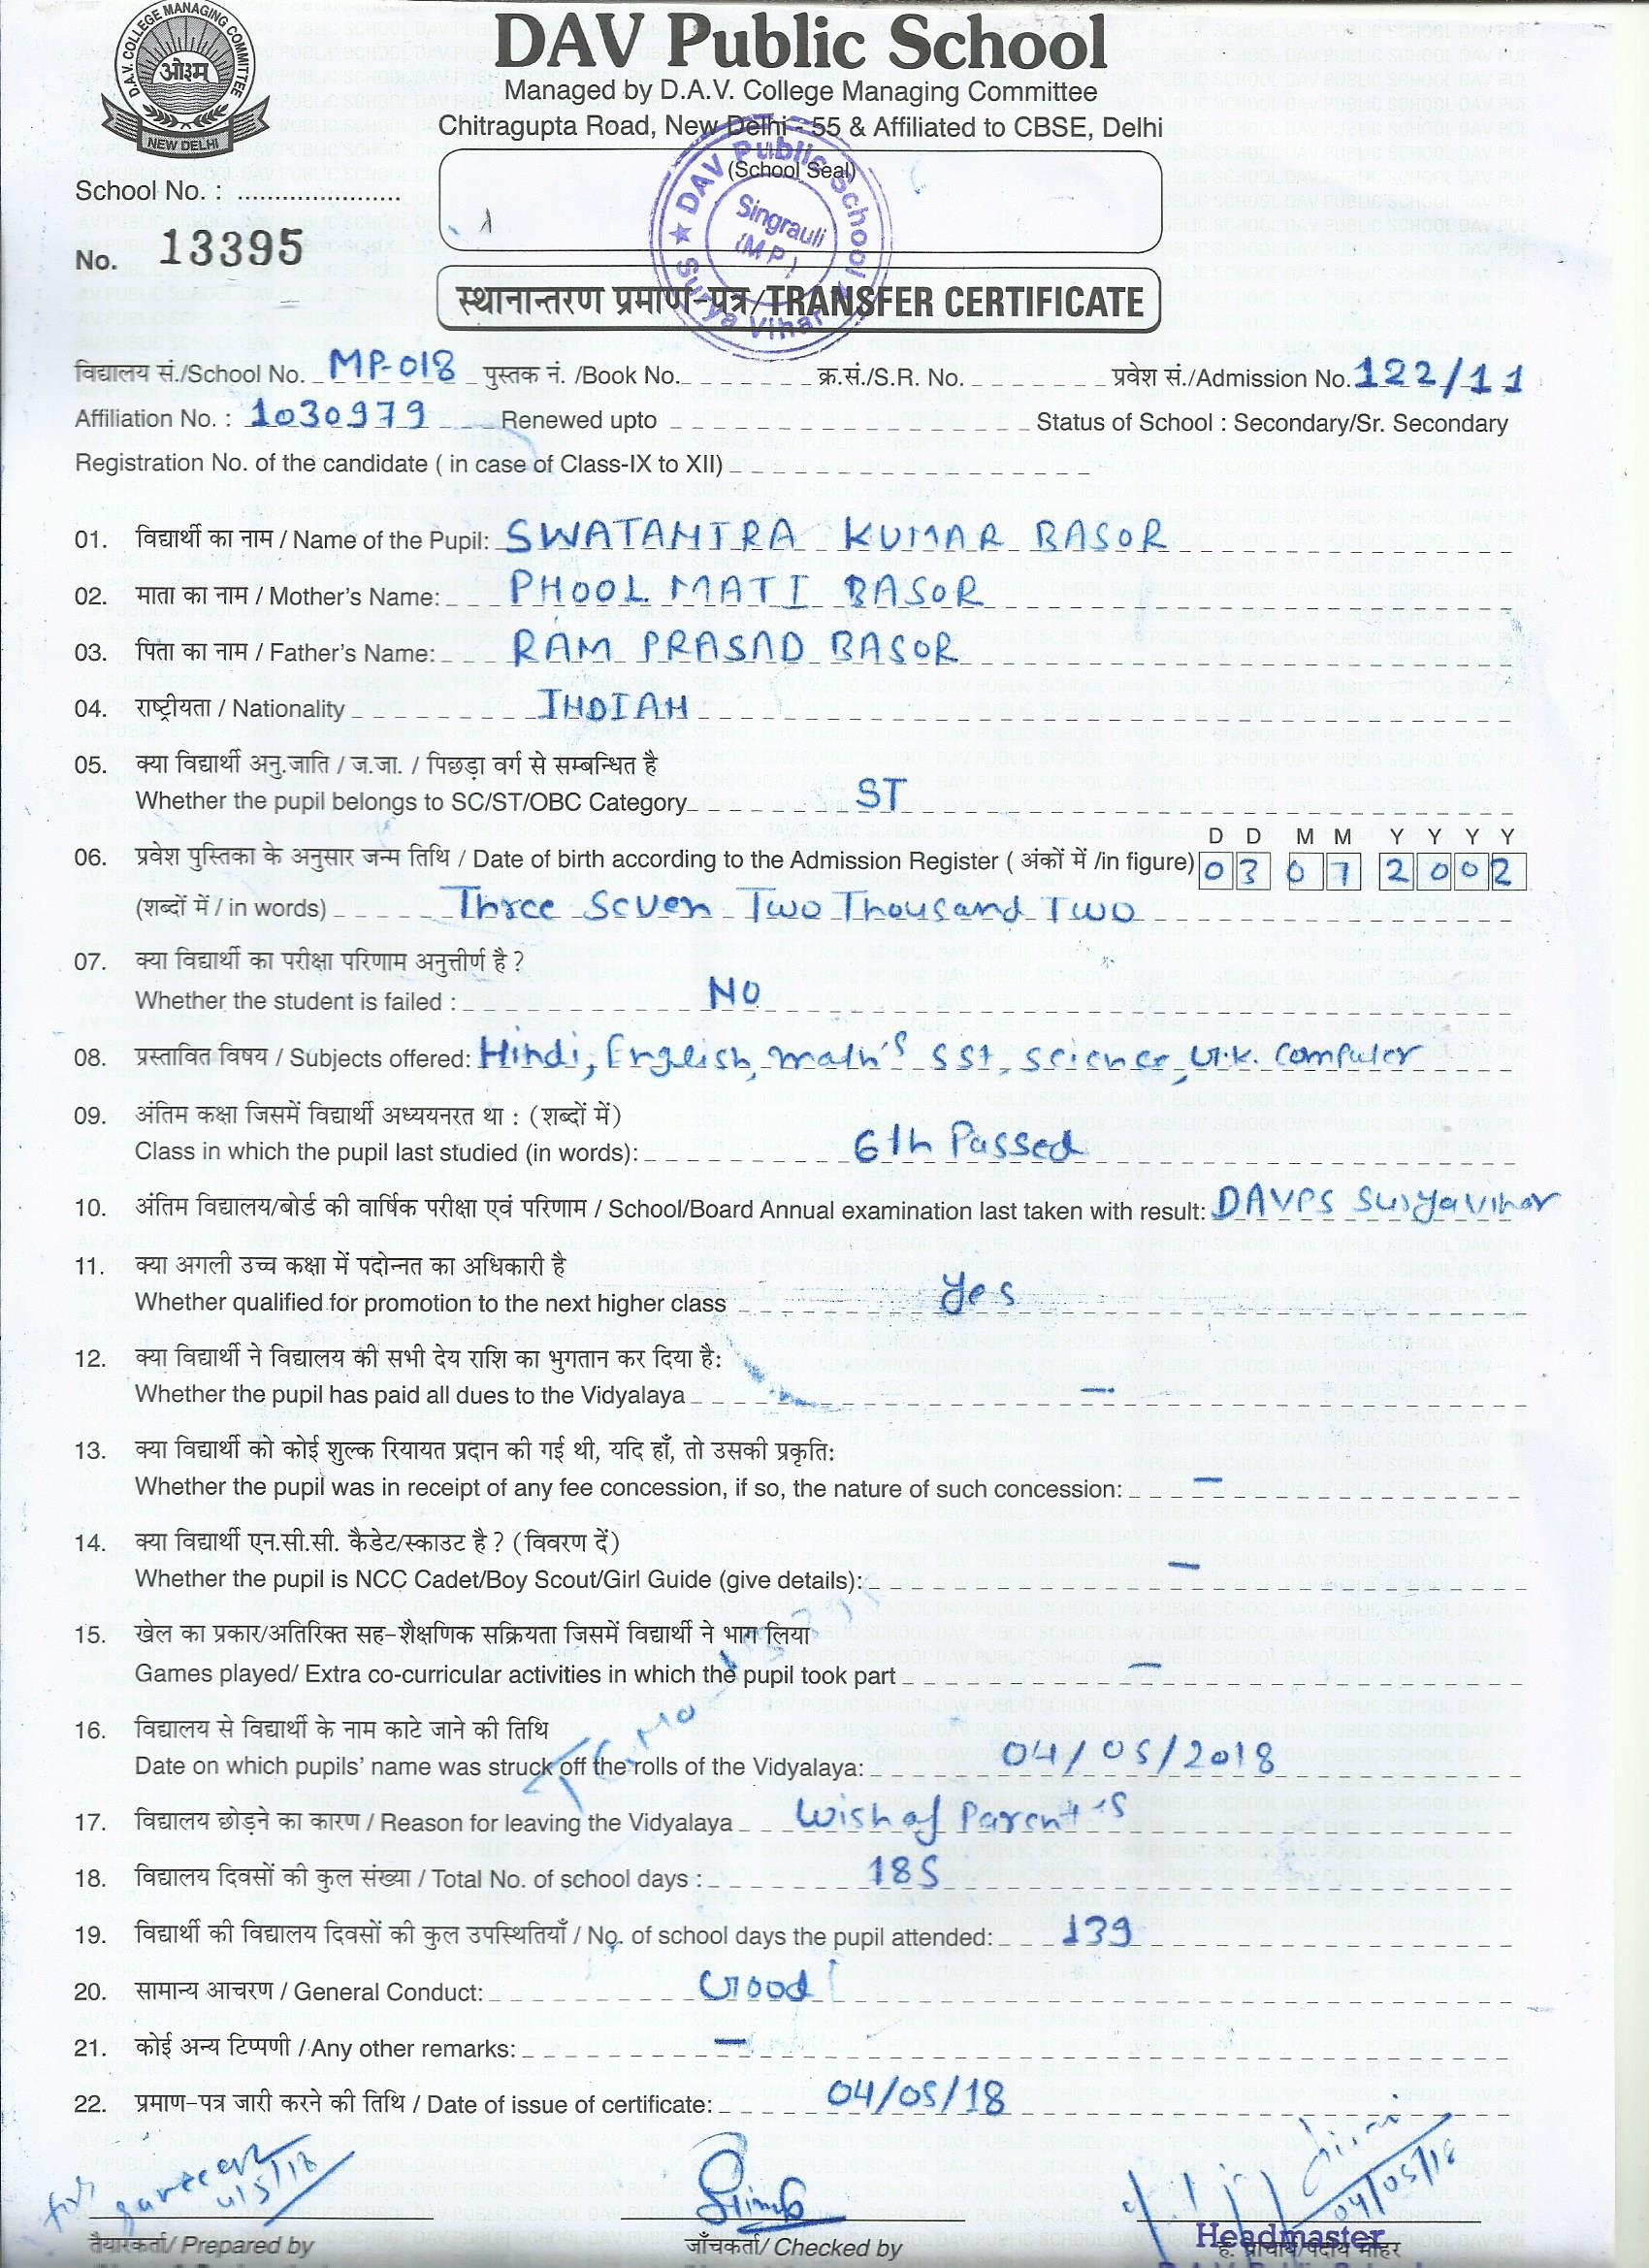 D.A.V. COLLEGE MANAGING COMMITTEE
ओ३म्
NEW DELHI
DAV Public School
Managed by D.A.V. College Managing Committee
Chitragupta Road, New Delhi - 55 & Affiliated to CBSE, Delhi
(School Seal)
DAV Public School
Singrauli
(M.P.)
Surya Vihar
School No. : ......................
No. 13395
स्थानान्तरण प्रमाण-पत्र/TRANSFER CERTIFICATE
विद्यालय सं./School No. MP-018 पुस्तक नं. /Book No. क्र.सं./S.R. No. प्रवेश सं./Admission No. 122/11
Affiliation No. : 1030979 Renewed upto Status of School : Secondary/Sr. Secondary
Registration No. of the candidate ( in case of Class-IX to XII)
01. विद्यार्थी का नाम / Name of the Pupil: SWATANTRA KUMAR BASOR
02. माता का नाम / Mother's Name: PHOOL MATI BASOR
03. पिता का नाम / Father's Name: RAM PRASAD BASOR
04. राष्ट्रीयता / Nationality INDIAN
05. क्या विद्यार्थी अनु.जाति / ज.जा. / पिछड़ा वर्ग से सम्बन्धित है
Whether the pupil belongs to SC/ST/OBC Category ST
D D M M Y Y Y Y
06. प्रवेश पुस्तिका के अनुसार जन्म तिथि / Date of birth according to the Admission Register ( अंकों में /in figure) 03 07 2002
(शब्दों में / in words) Three Seven Two Thousand Two
07. क्या विद्यार्थी का परीक्षा परिणाम अनुत्तीर्ण है ?
Whether the student is failed : NO
08. प्रस्तावित विषय / Subjects offered: Hindi, English, math's SSt, Science, G.K. Computer
09. अंतिम कक्षा जिसमें विद्यार्थी अध्ययनरत था : (शब्दों में)
Class in which the pupil last studied (in words): 6th Passed
10. अंतिम विद्यालय/बोर्ड की वार्षिक परीक्षा एवं परिणाम / School/Board Annual examination last taken with result: DAVPS Suryavihar
11. क्या अगली उच्च कक्षा में पदोन्नत का अधिकारी है
Whether qualified for promotion to the next higher class Yes
12. क्या विद्यार्थी ने विद्यालय की सभी देय राशि का भुगतान कर दिया है:
Whether the pupil has paid all dues to the Vidyalaya —
13. क्या विद्यार्थी को कोई शुल्क रियायत प्रदान की गई थी, यदि हाँ, तो उसकी प्रकृति:
Whether the pupil was in receipt of any fee concession, if so, the nature of such concession: —
14. क्या विद्यार्थी एन.सी.सी. कैडेट/स्काउट है ? (विवरण दें)
Whether the pupil is NCC Cadet/Boy Scout/Girl Guide (give details): —
15. खेल का प्रकार/अतिरिक्त सह-शैक्षणिक सक्रियता जिसमें विद्यार्थी ने भाग लिया
Games played/ Extra co-curricular activities in which the pupil took part —
16. विद्यालय से विद्यार्थी के नाम काटे जाने की तिथि
Date on which pupils' name was struck off the rolls of the Vidyalaya: 04/05/2018
17. विद्यालय छोड़ने का कारण / Reason for leaving the Vidyalaya Wish of Parent's
18. विद्यालय दिवसों की कुल संख्या / Total No. of school days : 185
19. विद्यार्थी की विद्यालय दिवसों की कुल उपस्थितियाँ / No. of school days the pupil attended: 139
20. सामान्य आचरण / General Conduct: Good
21. कोई अन्य टिप्पणी / Any other remarks: —
22. प्रमाण-पत्र जारी करने की तिथि / Date of issue of certificate: 04/05/18
for 4/5/18
04/05/18
Headmaster
तैयारकर्ता/ Prepared by जाँचकर्ता/ Checked by ह. प्राचार्य/पदीय मोहर